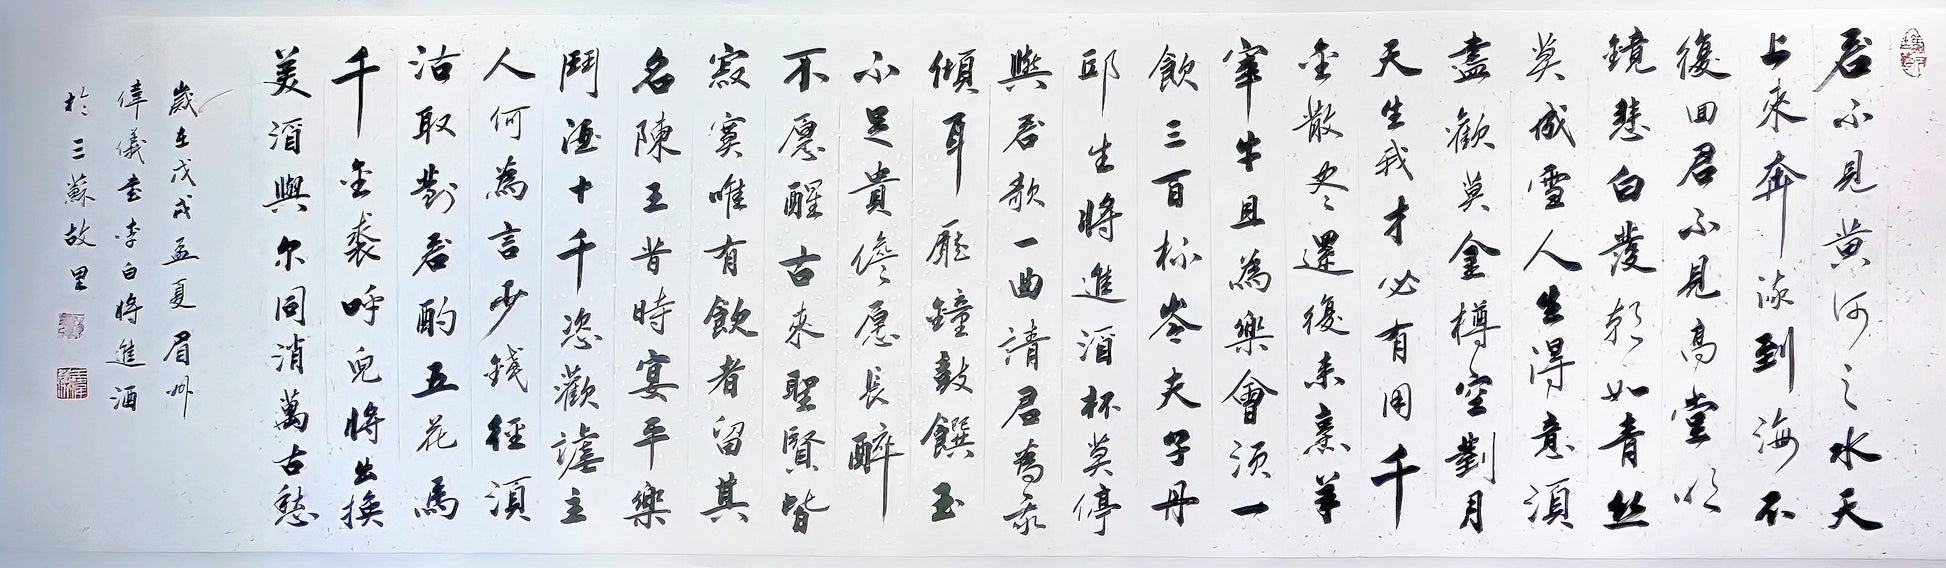 君不見黃河之水天
上來奔流到海不
復回君不見高堂明
鏡悲白發朝如青丝
莫成雪人生得意須
盡歡莫金樽空對月
天生我才必有用千
金散尽還復来烹羊
宰牛且為樂會須一
飲三百杯岑夫子丹
邱生將進酒杯莫停
與君歌一曲請君為我
傾耳聽鐘鼓饌玉
不足貴但愿長醉
不愿醒古來聖賢皆
寂寞唯有飲者留其
名陳王昔時宴平樂
鬥酒十千恣歡謔主
人何為言少錢徑須
沽取對君酌五花馬
千金裘呼兒將出換
美酒與尔同消萬古愁
歲在戊戌孟夏眉州
偉儀書李白將進酒
於三蘇故里